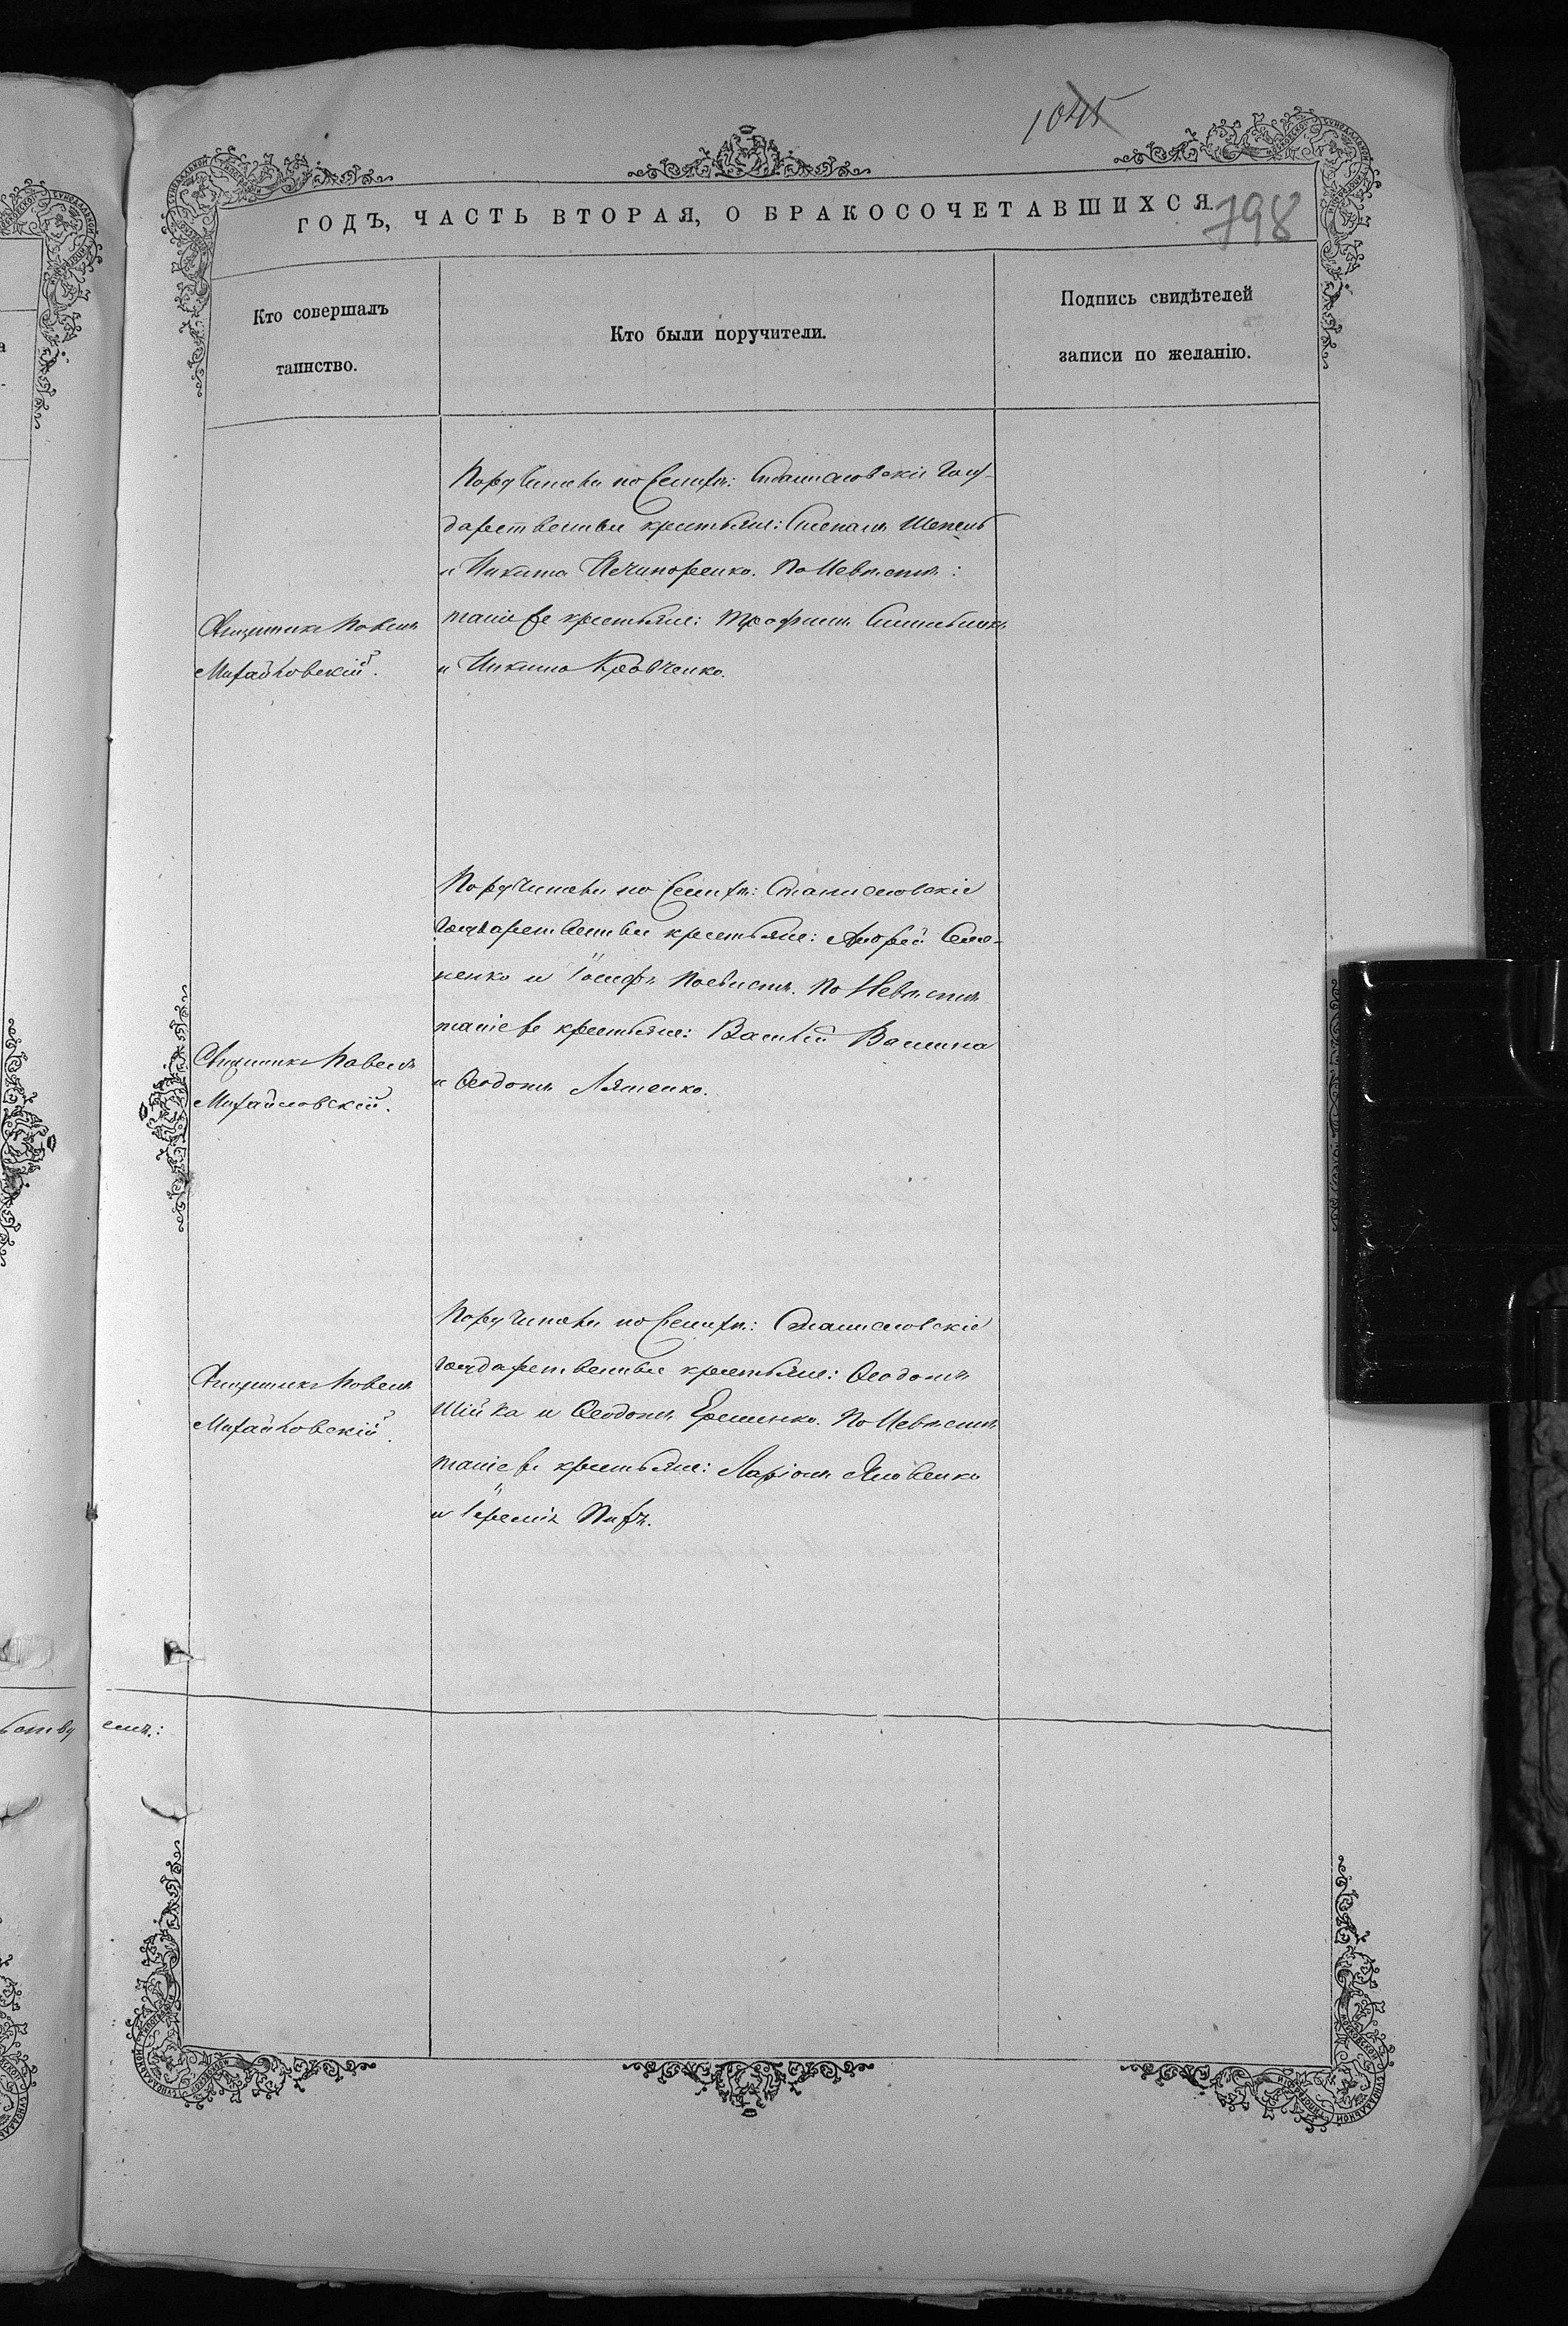 1045
ГОДЪ, ЧАСТЬ ВТОРАЯ, О БРАКОСОЧЕТАВШИХСЯ.
798
Кто совершалъ
таинство.
Кто были поручители.
Подпись свидѣтелей
записи по желанію.
Поручители по Женихѣ: Станиславскіе Госу-
дарственные крестьяне: Степанъ Шепель
и Никита Нечипоренко. По Невѣстѣ:
такіе же крестьяне: Трофимъ
и Никита Кравченко.
Священникъ Павелъ
Михайловскій.
Поручители по Женихѣ: Станиславскіе
Государственные крестьяне: Андрей Семе-
ненко и Іосифъ По Невѣстѣ
такіе же крестьяне: Василій Ващина
и Ѳеодотъ Ляшенко.
Священникъ Павелъ
Михайловскій.
Поручители по Женихѣ: Станиславскіе
Государственные крестьяне: Ѳеодотъ
Шійка и Ѳеодотъ Еременко. По Невѣстѣ
такіе же крестьяне: Ларіонъ Яковенко
и Іеремія
Священникъ Павелъ
Михайловскій.